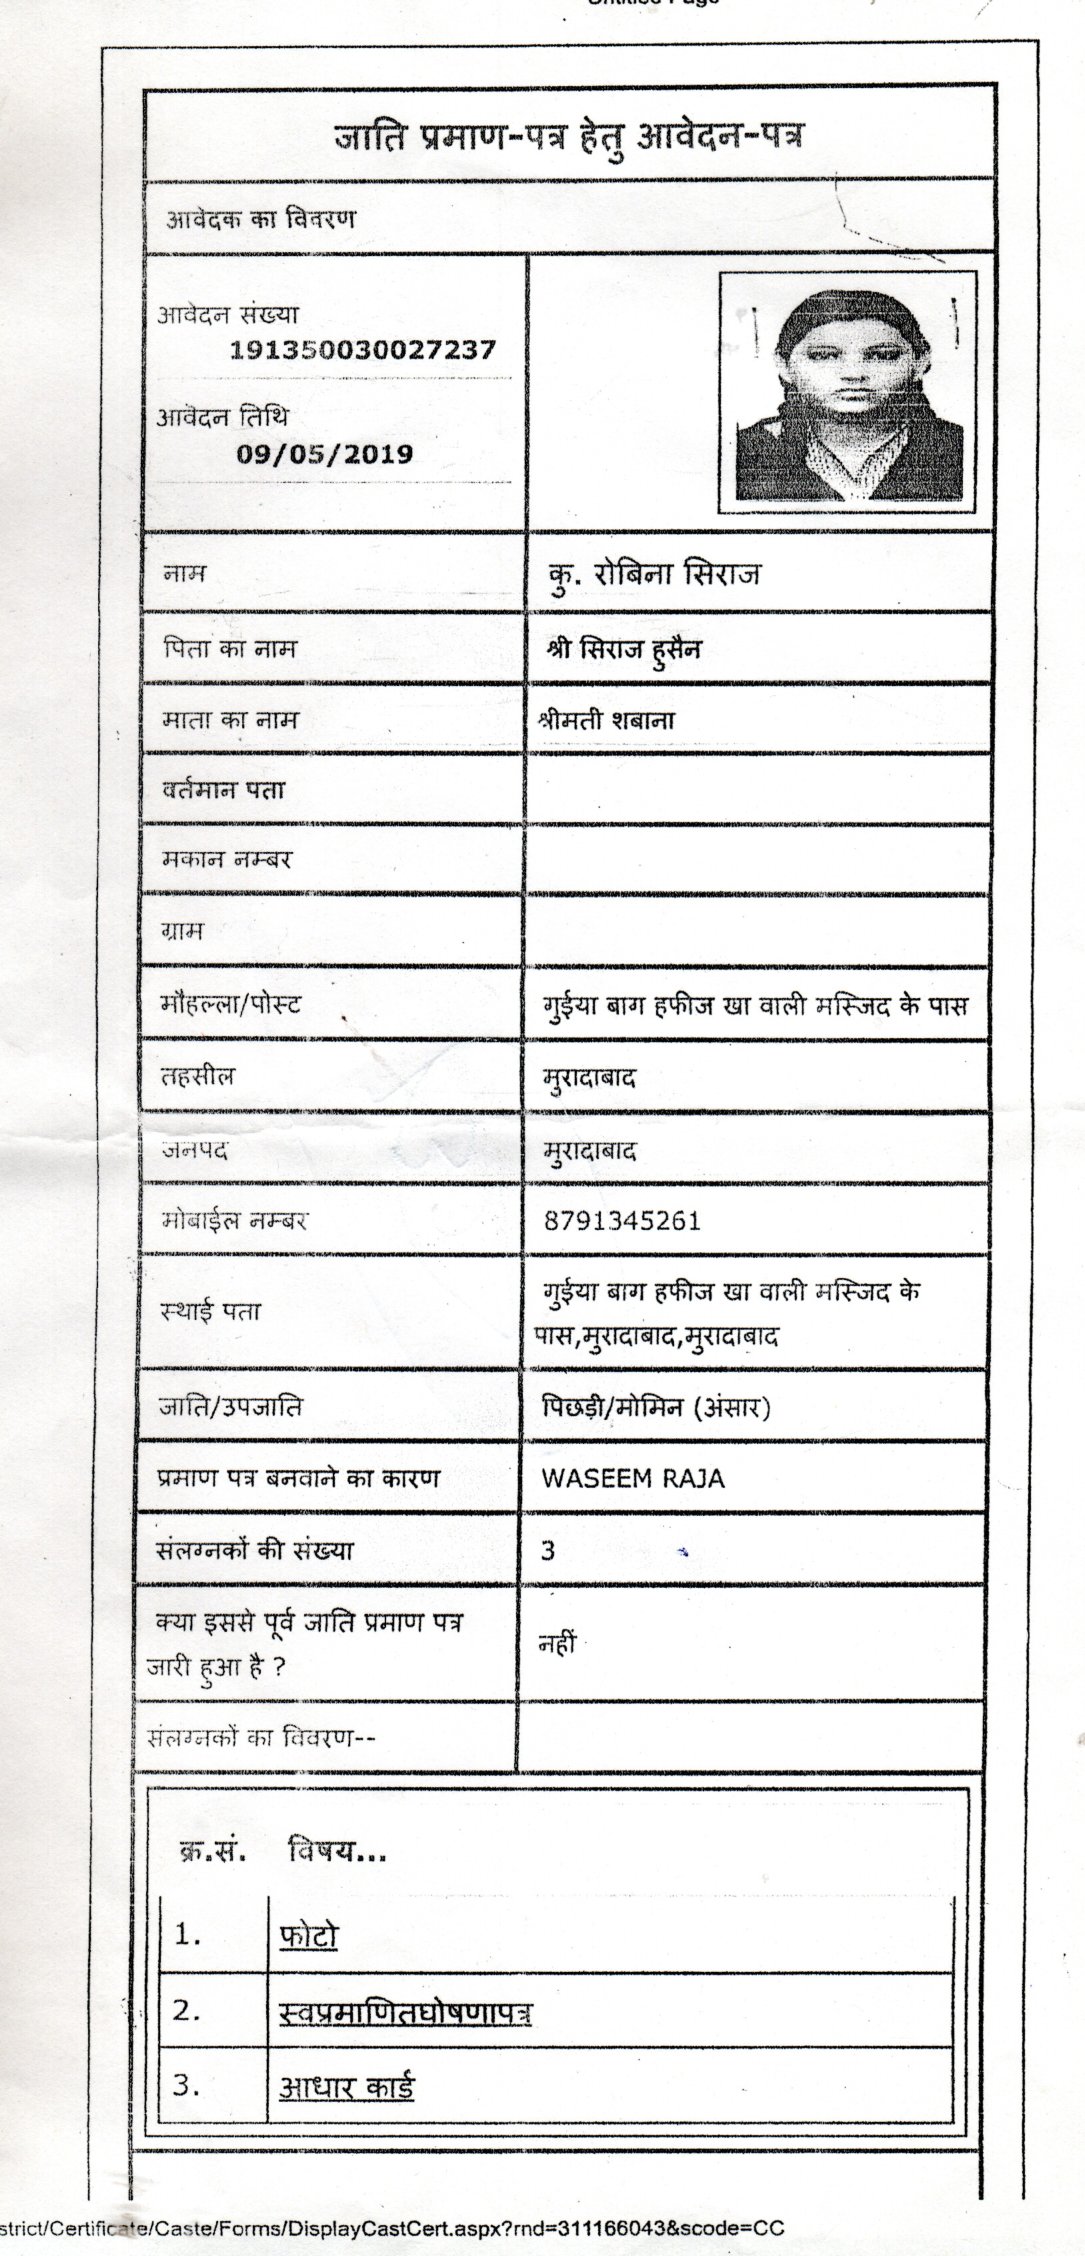 जाति प्रमाण-पत्र हेतु आवेदन-पत्र
आवेदक का विवरण
आवेदन संख्या
191350030027237
आवेदन तिथि
09/05/2019
नाम कु. रोबिना सिराज
पिता का नाम श्री सिराज हुसैन
माता का नाम श्रीमती शबाना
वर्तमान पता
मकान नम्बर
ग्राम
मौहल्ला/पोस्ट गुईया बाग हफीज खा वाली मस्जिद के पास
तहसील मुरादाबाद
जनपद मुरादाबाद
मोबाईल नम्बर 8791345261
स्थाई पता गुईया बाग हफीज खा वाली मस्जिद के
पास,मुरादाबाद,मुरादाबाद
जाति/उपजाति पिछड़ी/मोमिन (अंसार)
प्रमाण पत्र बनवाने का कारण WASEEM RAJA
संलग्नकों की संख्या 3
क्या इससे पूर्व जाति प्रमाण पत्र
जारी हुआ है ? नहीं
संलग्नकों का विवरण--
क्र.सं. विषय...
1. फोटो
2. स्वप्रमाणितघोषणापत्र
3. आधार कार्ड
strict/Certificate/Caste/Forms/DisplayCastCert.aspx?rnd=311166043&scode=CC